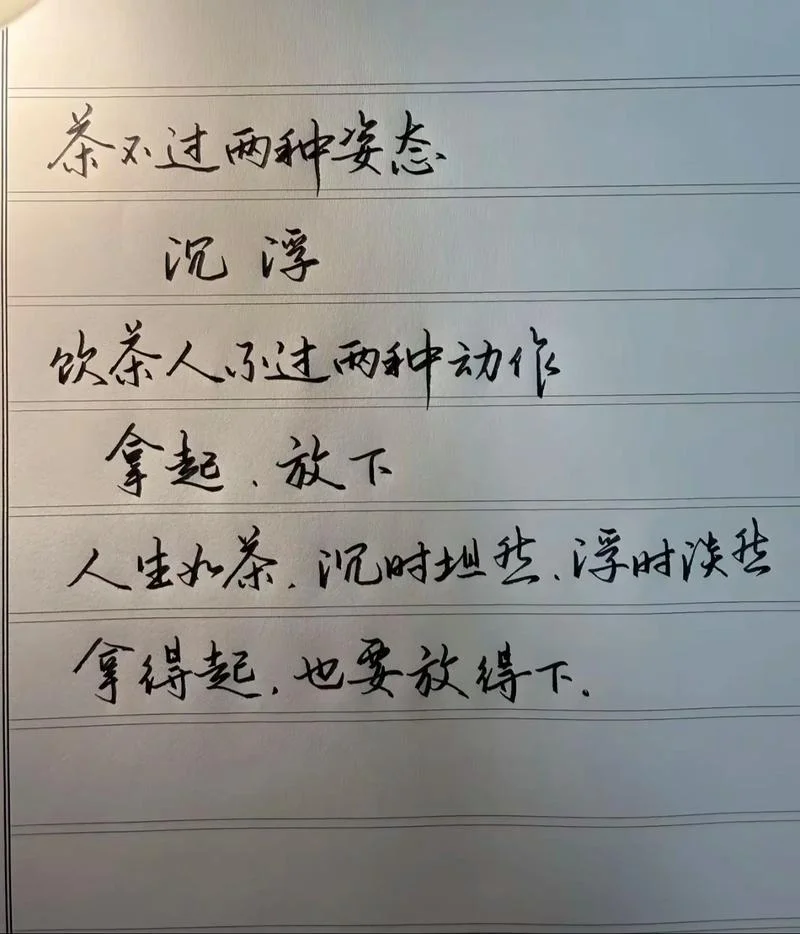 茶不过两种姿态
沉 浮
饮茶人不过两种动作
拿起、放下
人生如茶，沉时坦然、浮时淡然
拿得起，也要放得下.